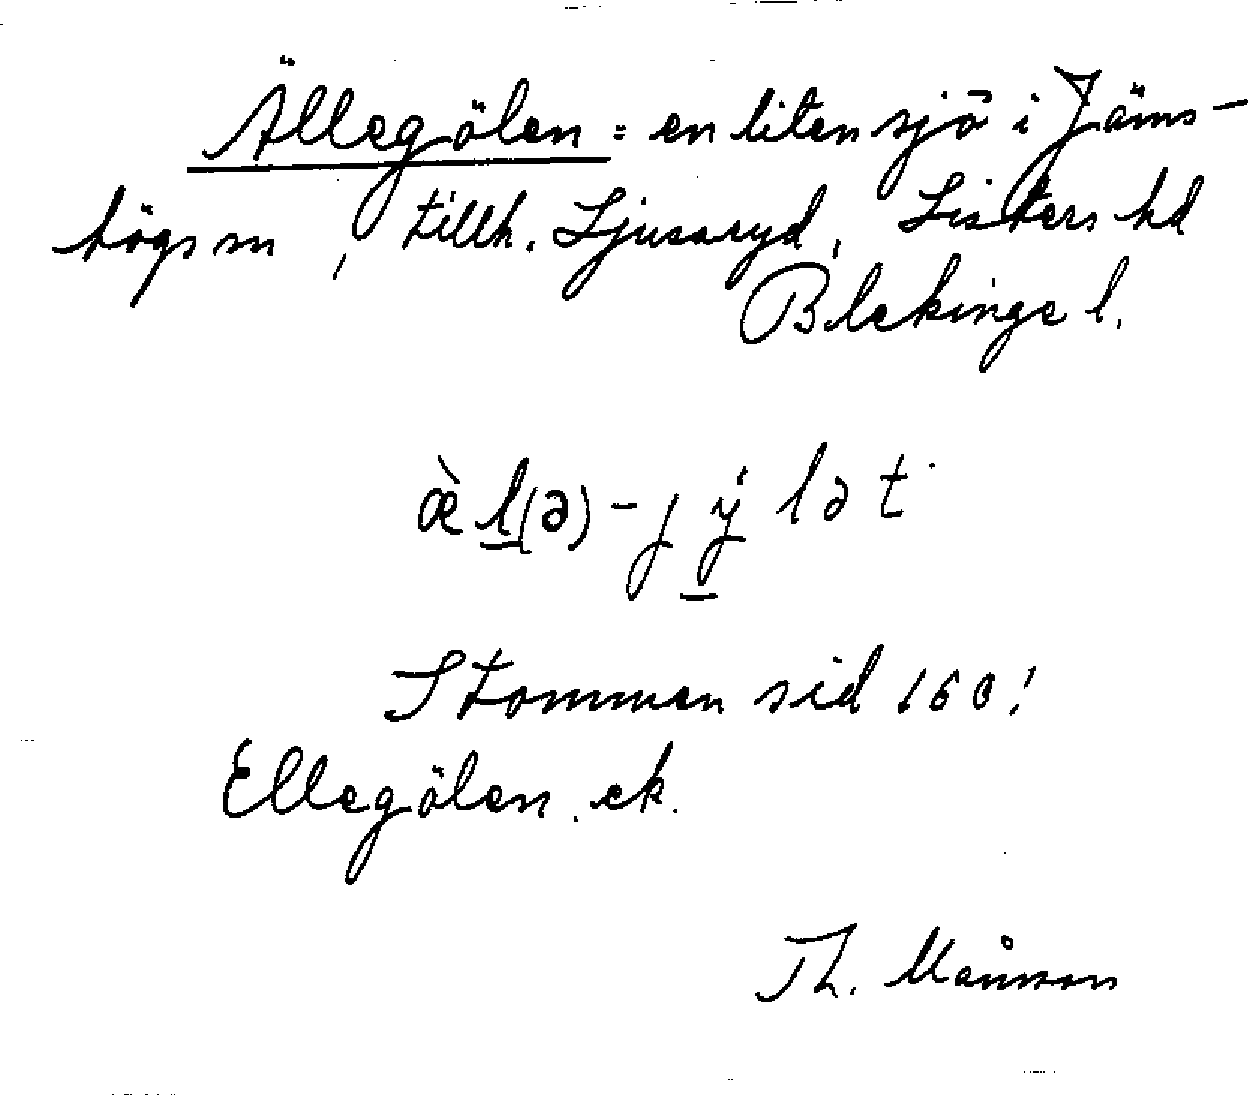 Ällegölen = en liten sjö i Jäms-
högs sn, tillh. Ljusaryd, Listers hd
Blekinge l.
æ̀l(ə)-jýlət
Stommen sid 160!
Ellegölen. ek.
Th. Månsson